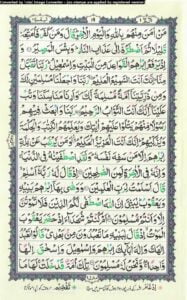 Converted by Tiff Combine - (no stamps are applied by registered version)
مَنْ اٰمَنَ مِنْهُمْ بِاللّٰهِ وَالْيَوْمِ الْاٰخِرِ قَالَ وَمَنْ كَفَرَ فَاُمَتِّعُهٗ
قَلِيْلًا ثُمَّ اَضْطَرُّهٗٓ اِلٰى عَذَابِ النَّارِ وَبِئْسَ الْمَصِيْرُ وَاِذْ
يَرْفَعُ اِبْرٰهٖمُ الْقَوَاعِدَ مِنَ الْبَيْتِ وَاِسْمٰعِيْلُ رَبَّنَا تَقَبَّلْ
مِنَّا اِنَّكَ اَنْتَ السَّمِيْعُ الْعَلِيْمُ رَبَّنَا وَاجْعَلْنَا مُسْلِمَيْنِ لَكَ
وَمِنْ ذُرِّيَّتِنَآ اُمَّةً مُّسْلِمَةً لَّكَ وَاَرِنَا مَنَاسِكَنَا وَتُبْ
عَلَيْنَا اِنَّكَ اَنْتَ التَّوَّابُ الرَّحِيْمُ رَبَّنَا وَابْعَثْ فِيْهِمْ
رَسُوْلًا مِّنْهُمْ يَتْلُوْا عَلَيْهِمْ اٰيٰتِكَ وَيُعَلِّمُهُمُ الْكِتٰبَ
وَالْحِكْمَةَ وَيُزَكِّيْهِمْ اِنَّكَ اَنْتَ الْعَزِيْزُ الْحَكِيْمُ وَمَنْ يَّرْغَبُ عَنْ مِّلَّةِ
اِبْرٰهٖمَ اِلَّا مَنْ سَفِهَ نَفْسَهٗ وَلَقَدِ اصْطَفَيْنٰهُ فِي الدُّنْيَا
وَاِنَّهٗ فِي الْاٰخِرَةِ لَمِنَ الصّٰلِحِيْنَ اِذْ قَالَ لَهٗ رَبُّهٗٓ اَسْلِمْ
قَالَ اَسْلَمْتُ لِرَبِّ الْعٰلَمِيْنَ وَوَصّٰى بِهَآ اِبْرٰهٖمُ بَنِيْهِ
وَيَعْقُوْبُ يٰبَنِيَّ اِنَّ اللّٰهَ اصْطَفٰى لَكُمُ الدِّيْنَ فَلَا تَمُوْتُنَّ
اِلَّا وَاَنْتُمْ مُّسْلِمُوْنَ اَمْ كُنْتُمْ شُهَدَآءَ اِذْ حَضَرَ يَعْقُوْبَ
الْمَوْتُ اِذْ قَالَ لِبَنِيْهِ مَا تَعْبُدُوْنَ مِنْ بَعْدِيْ قَالُوْا نَعْبُدُ
اِلٰهَكَ وَاِلٰهَ اٰبَآئِكَ اِبْرٰهٖمَ وَاِسْمٰعِيْلَ وَاِسْحٰقَ اِلٰهًا
وَّاحِدًا وَّنَحْنُ لَهٗ مُسْلِمُوْنَ تِلْكَ اُمَّةٌ قَدْ خَلَتْ لَهَا مَا